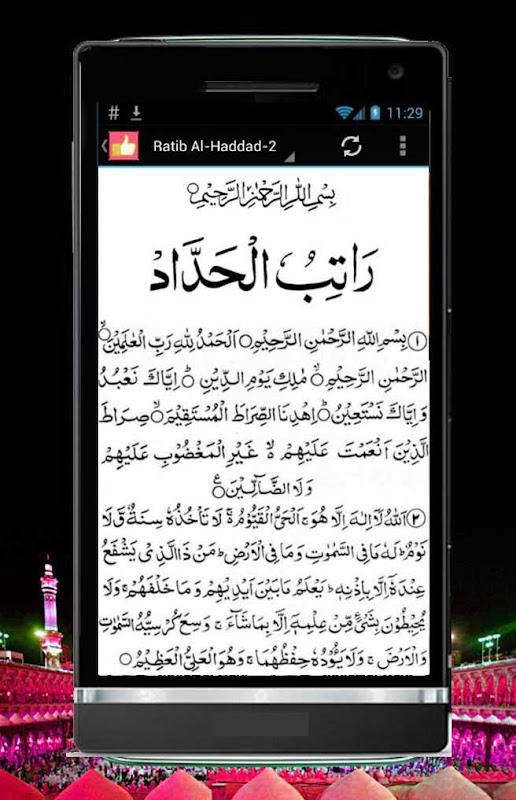 # 11:29
Ratib Al-Haddad-2
بِسْمِ اللهِ الرَّحْمٰنِ الرَّحِيْمِ
رَاتِبُ الْحَدَّادْ
① بِسْمِ اللهِ الرَّحْمٰنِ الرَّحِيْمِ ۝ اَلْحَمْدُ لِلّٰهِ رَبِّ الْعٰلَمِيْنَ ۝
الرَّحْمٰنِ الرَّحِيْمِ ۝ مٰلِكِ يَوْمِ الدِّيْنِ ۝ اِيَّاكَ نَعْبُدُ
وَاِيَّاكَ نَسْتَعِيْنُ ۝ اِهْدِنَا الصِّرَاطَ الْمُسْتَقِيْمَ ۝ صِرَاطَ
الَّذِيْنَ اَنْعَمْتَ عَلَيْهِمْ ۙ غَيْرِ الْمَغْضُوْبِ عَلَيْهِمْ
وَلَا الضَّآلِّيْنَ ۝
② اَللهُ لَآ اِلٰهَ اِلَّا هُوَ ۚ اَلْحَيُّ الْقَيُّوْمُ ۚ لَا تَأْخُذُهٗ سِنَةٌ وَّلَا
نَوْمٌ ۗ لَهٗ مَا فِى السَّمٰوٰتِ وَمَا فِى الْاَرْضِ ۗ مَنْ ذَا الَّذِيْ يَشْفَعُ
عِنْدَهٗٓ اِلَّا بِاِذْنِهٖ ۗ يَعْلَمُ مَا بَيْنَ اَيْدِيْهِمْ وَمَا خَلْفَهُمْ ۚ وَلَا
يُحِيْطُوْنَ بِشَيْءٍ مِّنْ عِلْمِهٖٓ اِلَّا بِمَا شَآءَ ۚ وَسِعَ كُرْسِيُّهُ السَّمٰوٰتِ
وَالْاَرْضَ ۚ وَلَا يَؤُدُهٗ حِفْظُهُمَا ۚ وَهُوَ الْعَلِيُّ الْعَظِيْمُ ۝